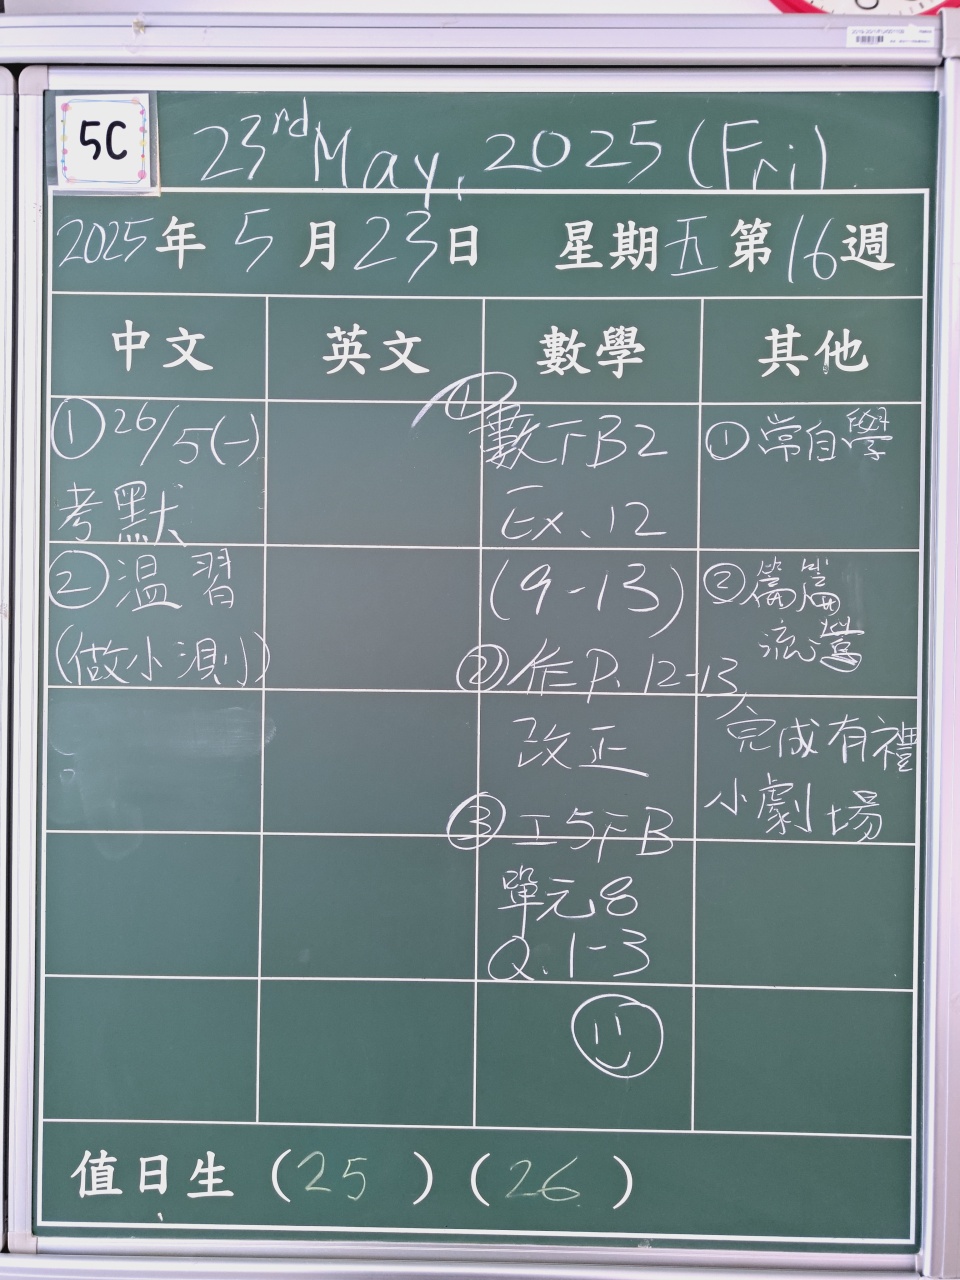 5C
23rd May, 2025 (Fri)
2025年5月23日 星期五第16週
中文
英文
數學
其他
① 26/5(一)
考默
② 溫習
(做小測小)
① 數下B2
Ex、12
(9-13)
② 作P. 12-13
改正
③ 工5下B
單元8
Q. 1-3
① 常自學
② 篇篇
流
完成有禮
小劇場
值日生 (25) (26)